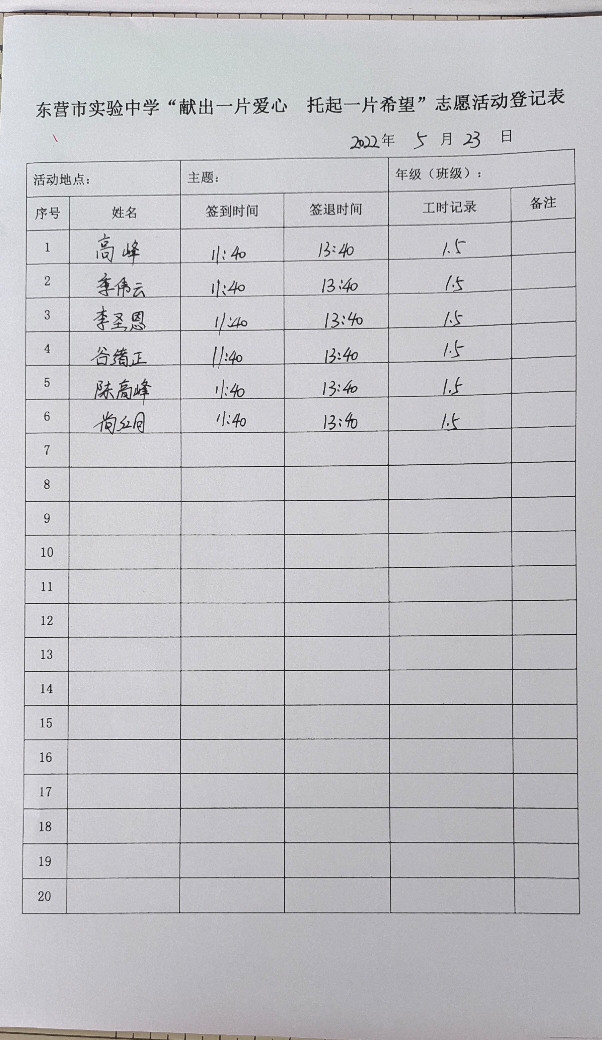 东营市实验中学“献出一片爱心 托起一片希望”志愿活动登记表
2022年 5 月 23 日
活动地点： 主题： 年级（班级）：
序号 姓名 签到时间 签退时间 工时记录 备注
1 高峰 11:40 13:40 1.5
2 李伟云 11:40 13:40 1.5
3 李圣恩 11:40 13:40 1.5
4 谷绪正 11:40 13:40 1.5
5 陈高峰 11:40 13:40 1.5
6 尚红月 11:40 13:40 1.5
7
8
9
10
11
12
13
14
15
16
17
18
19
20